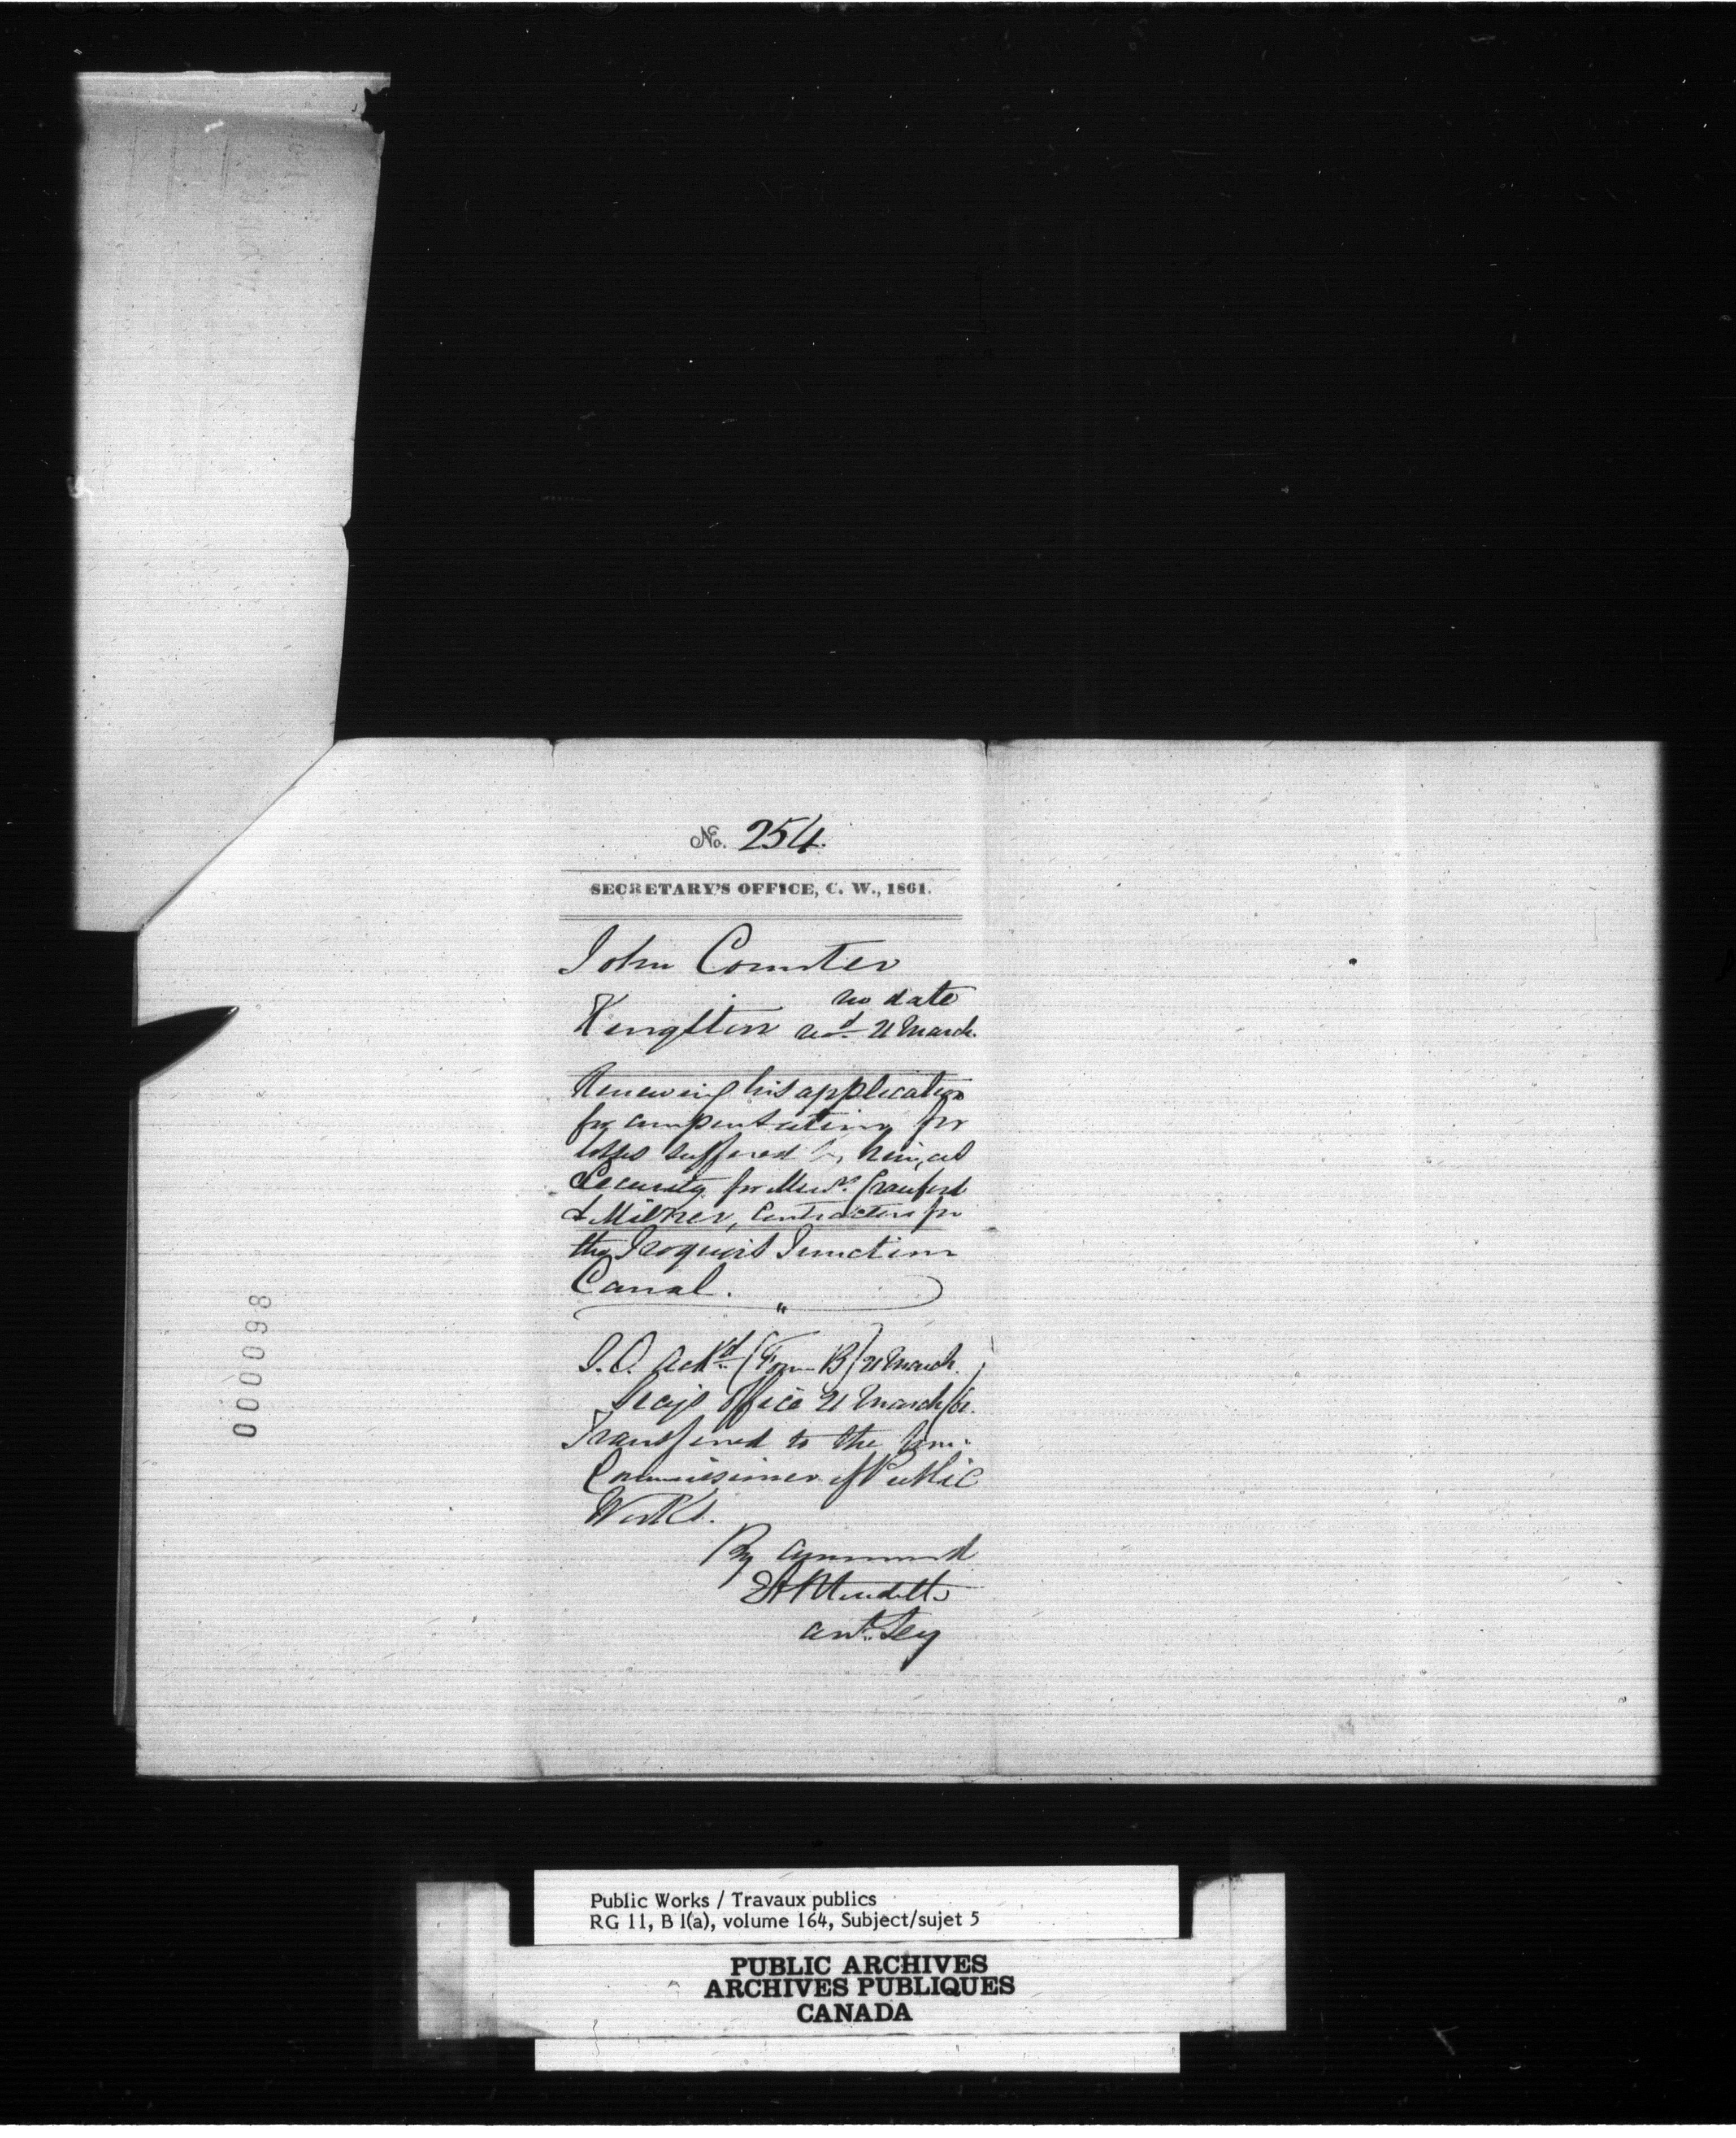 No. 254.
SECRETARY'S OFFICE, C. W., 1861.
John Counter
no date
Kingston recd 21 March.
Renewing his application
for compensation for
losses suffered by him, as
Security for Messrs Crauford
& Milner, Contractors for
the Iroquois Junction
Canal.
"
Ackd (Form B) 21 March.
Secy's Office 21 March/61.
Transferred to the
Commissioner of Public
Works.
By command
Asst. Secy
000098
Public Works / Travaux publics
RG 11, B 1(a), volume 164, Subject/sujet 5
PUBLIC ARCHIVES
ARCHIVES PUBLIQUES
CANADA